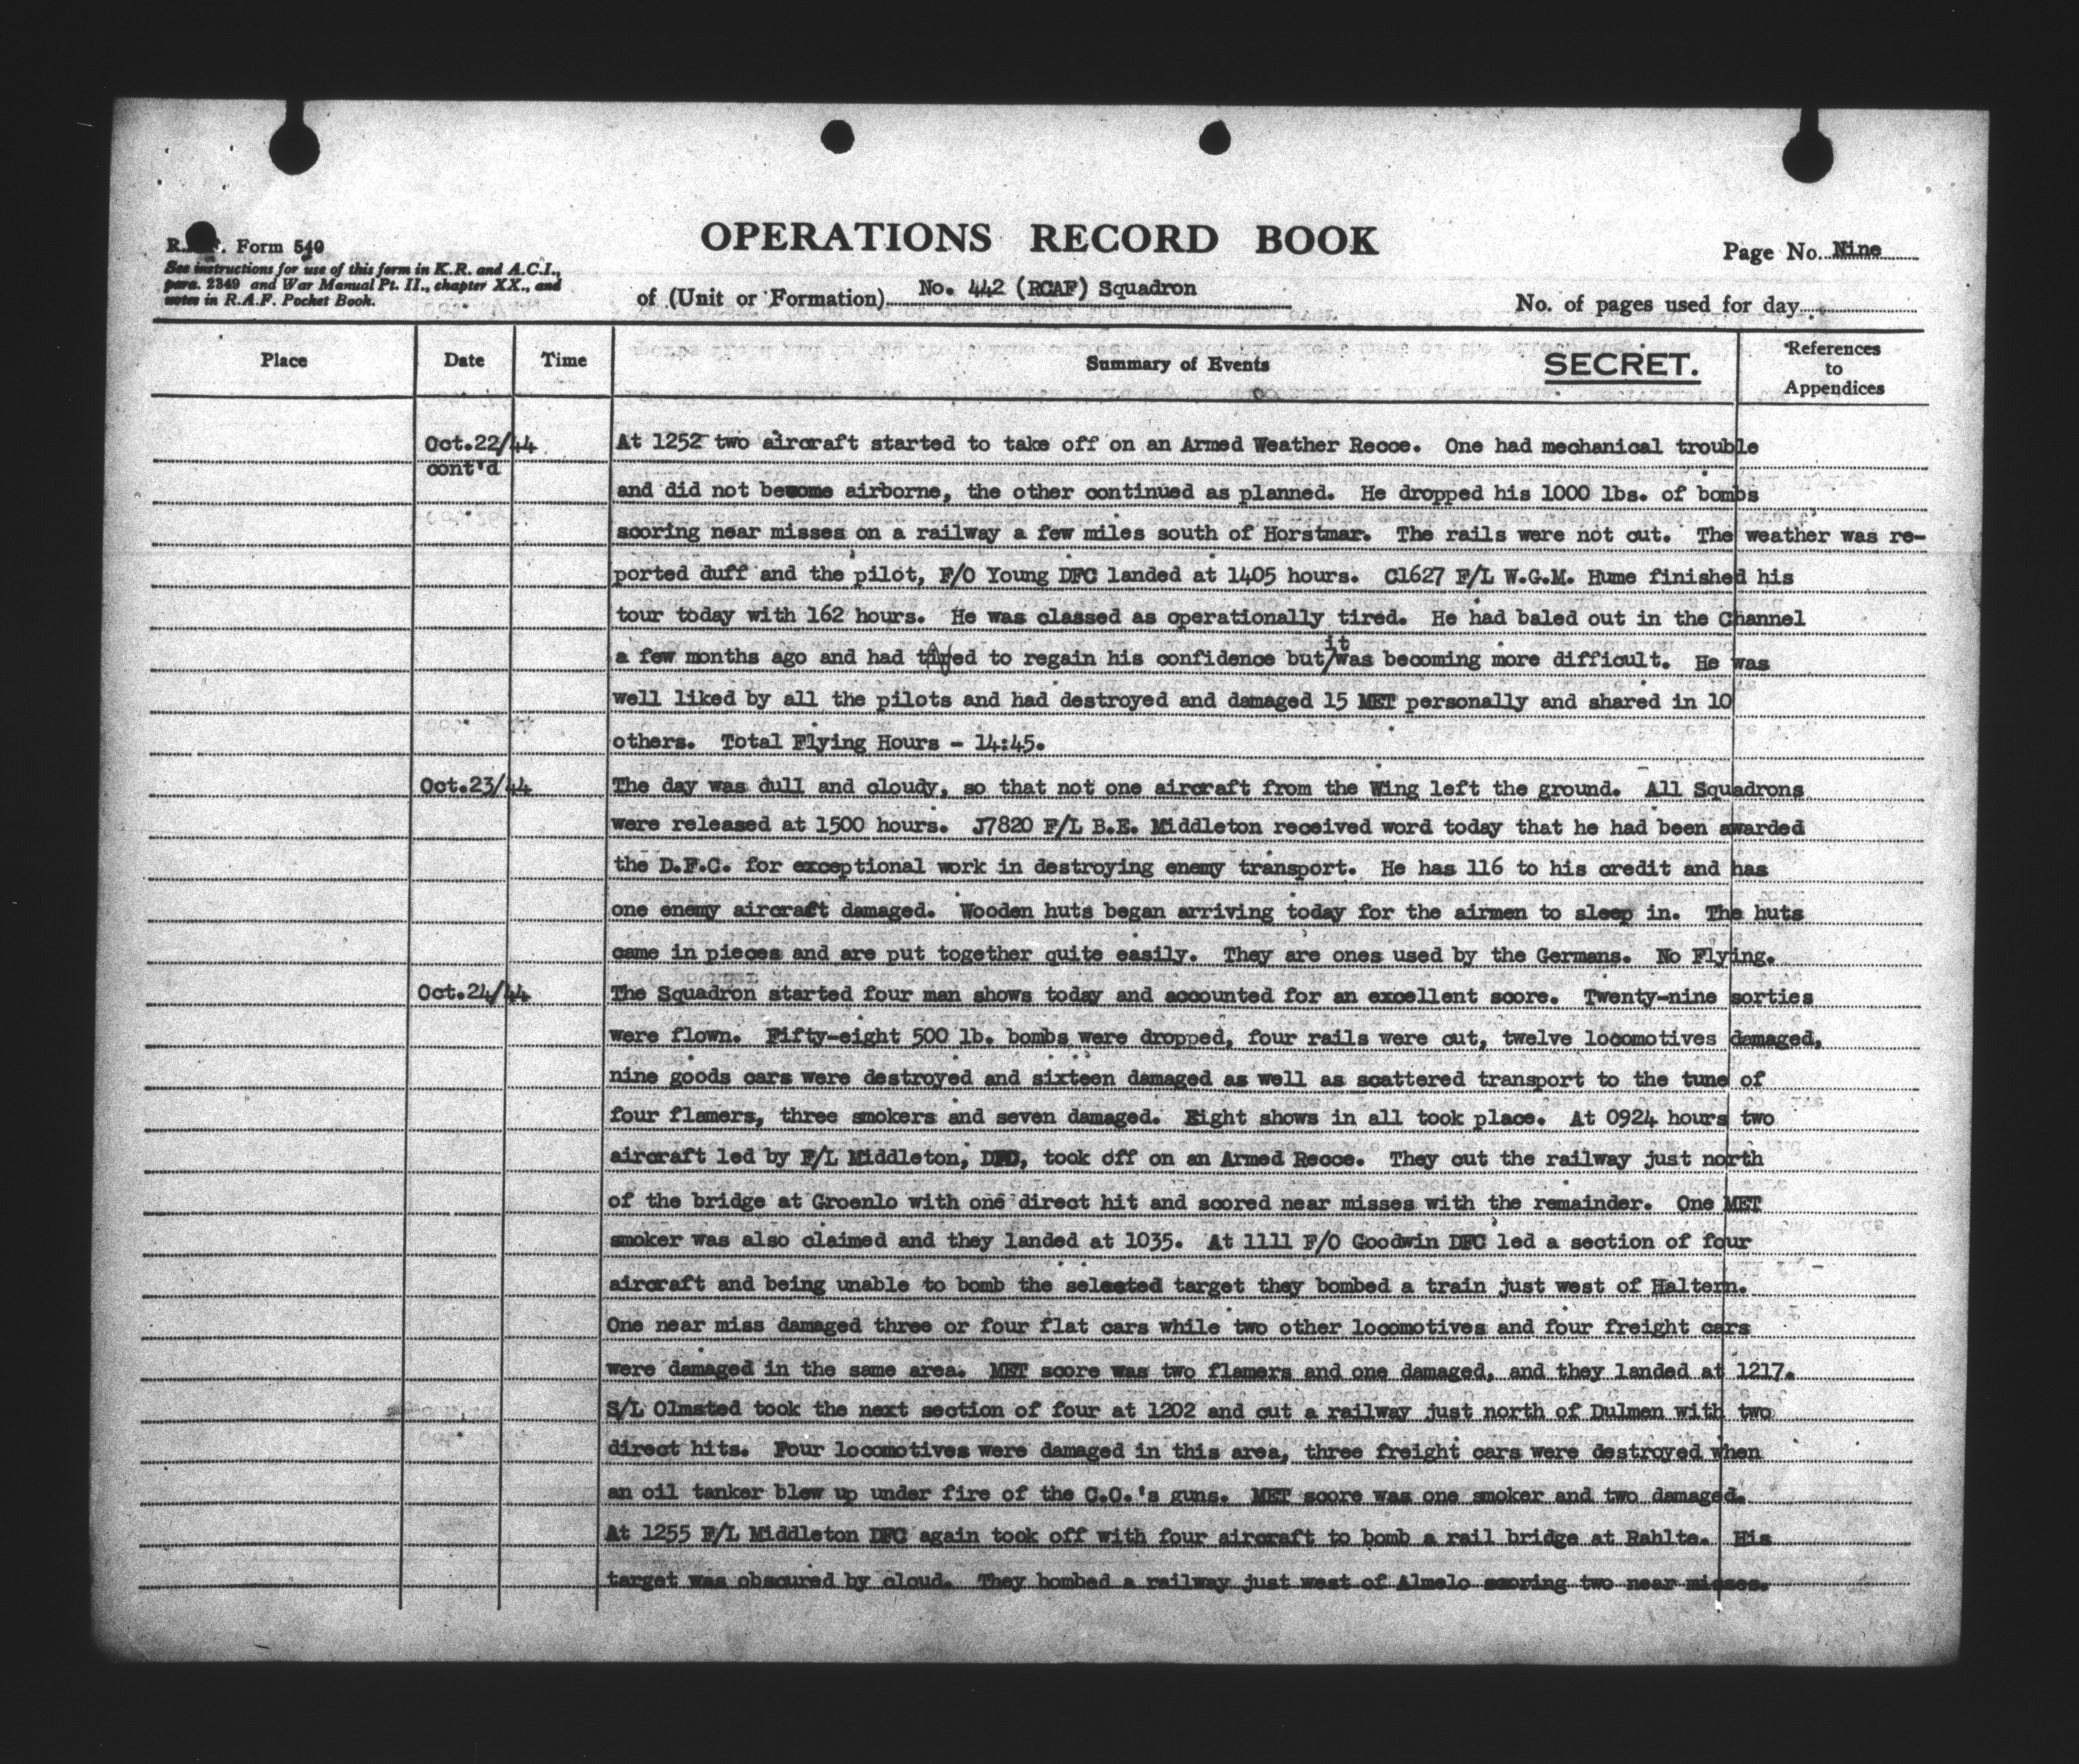 OPERATIONS RECORD BOOK
R.A.F. Form 540
See instructions for use of this form in K.R. and A.C.I.,
para. 2349 and War Manual Pt. II., chapter XX., and
notes in R.A.F. Pocket Book.
Page No. Nine
of (Unit or Formation) No. 442 (RCAF) Squadron
No. of pages used for day
Place Date Time Summary of Events SECRET. References to Appendices
Oct.22/44 At 1252 two aircraft started to take off on an Armed Weather Recce. One had mechanical trouble
cont'd
and did not become airborne, the other continued as planned. He dropped his 1000 lbs. of bombs
scoring near misses on a railway a few miles south of Horstmar. The rails were not cut. The weather was re-
ported duff and the pilot, F/O Young DFC landed at 1405 hours. C1627 F/L W.G.M. Hume finished his
tour today with 162 hours. He was classed as operationally tired. He had baled out in the Channel
a few months ago and had tried to regain his confidence but/it was becoming more difficult. He was
well liked by all the pilots and had destroyed and damaged 15 MET personally and shared in 10
others. Total Flying Hours - 14:45.
Oct.23/44 The day was dull and cloudy, so that not one aircraft from the Wing left the ground. All Squadrons
were released at 1500 hours. J7820 F/L B.E. Middleton received word today that he had been awarded
the D.F.C. for exceptional work in destroying enemy transport. He has 116 to his credit and has
one enemy aircraft damaged. Wooden huts began arriving today for the airmen to sleep in. The huts
came in pieces and are put together quite easily. They are ones used by the Germans. No Flying.
Oct.24/44 The Squadron started four man shows today and accounted for an excellent score. Twenty-nine sorties
were flown. Fifty-eight 500 lb. bombs were dropped, four rails were cut, twelve locomotives damaged,
nine goods cars were destroyed and sixteen damaged as well as scattered transport to the tune of
four flamers, three smokers and seven damaged. Eight shows in all took place. At 0924 hours two
aircraft led by F/L Middleton, DFC, took off on an Armed Recce. They cut the railway just north
of the bridge at Groenlo with one direct hit and scored near misses with the remainder. One MET
smoker was also claimed and they landed at 1035. At 1111 F/O Goodwin DFC led a section of four
aircraft and being unable to bomb the selected target they bombed a train just west of Haltern.
One near miss damaged three or four flat cars while two other locomotives and four freight cars
were damaged in the same area. MET score was two flamers and one damaged, and they landed at 1217.
S/L Olmsted took the next section of four at 1202 and cut a railway just north of Dulmen with two
direct hits. Four locomotives were damaged in this area, three freight cars were destroyed when
an oil tanker blew up under fire of the C.O.'s guns. MET score was one smoker and two damaged.
At 1255 F/L Middleton DFC again took off with four aircraft to bomb a rail bridge at Rahlte. His
target was obscured by cloud. They bombed a railway just west of Almelo scoring two near misses.